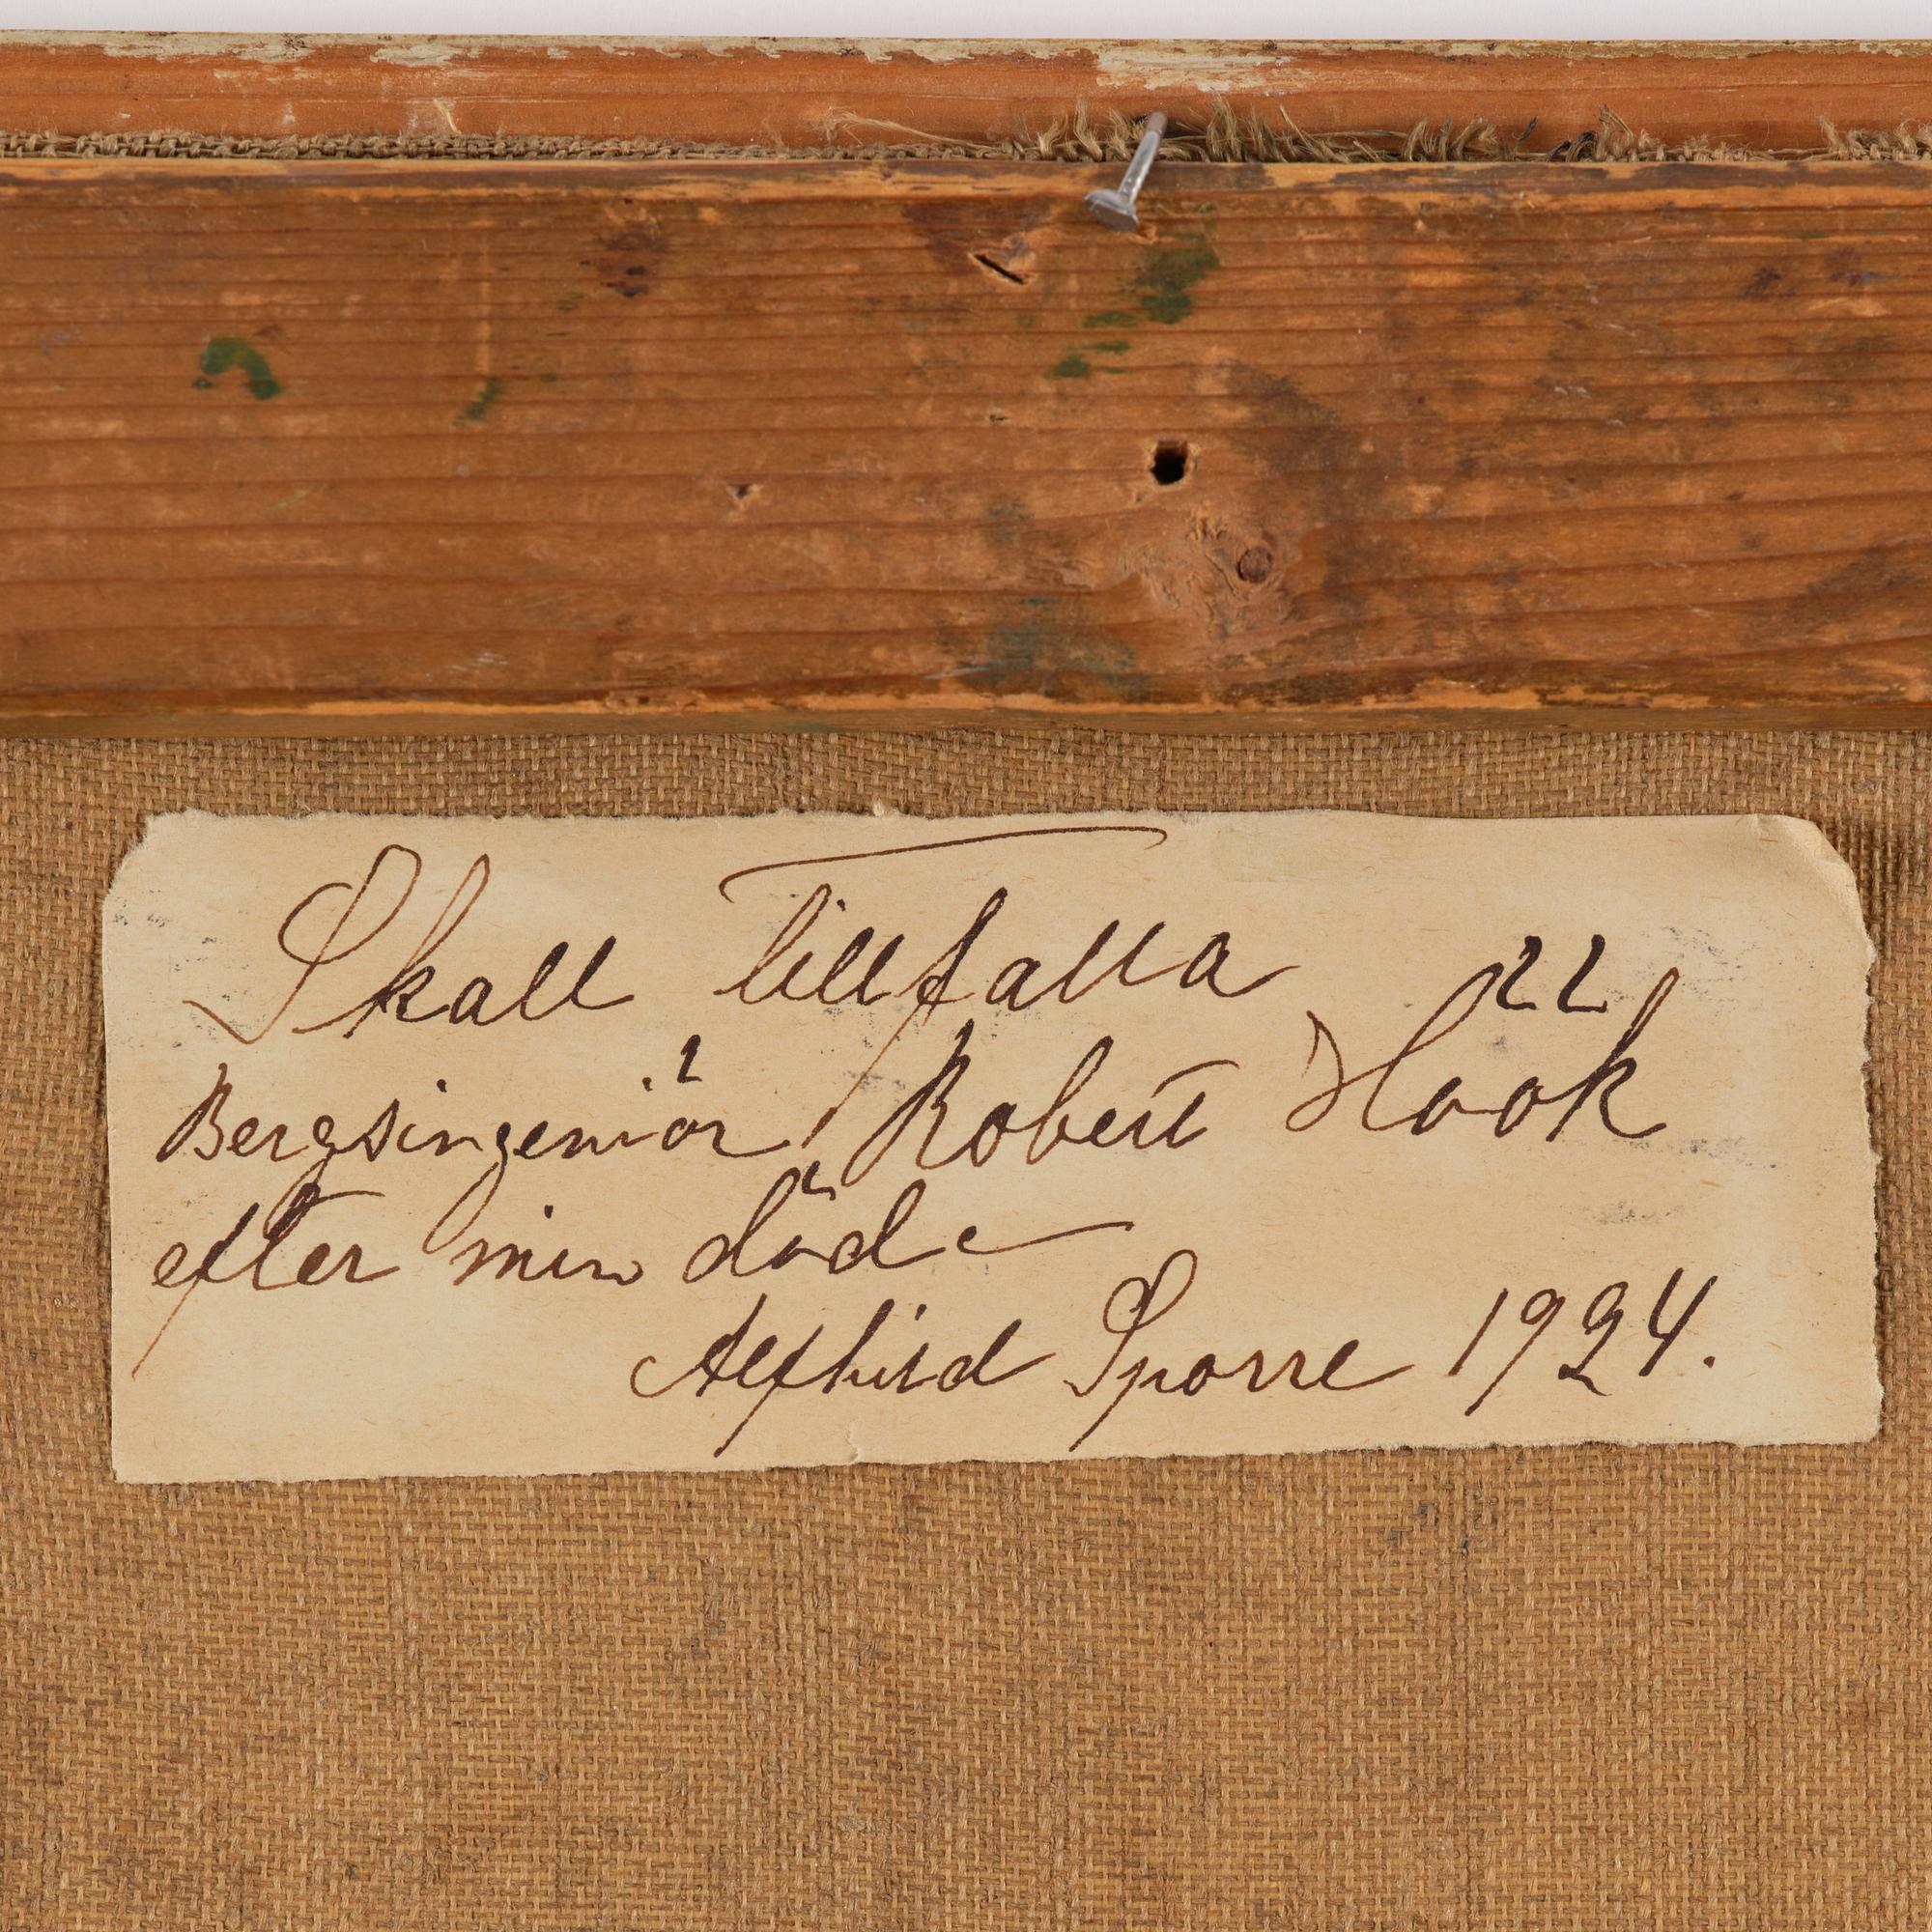 Skall tillfalla
Bergsingeniör Robert Höök
efter min död
Alfhild Sporre 1924.